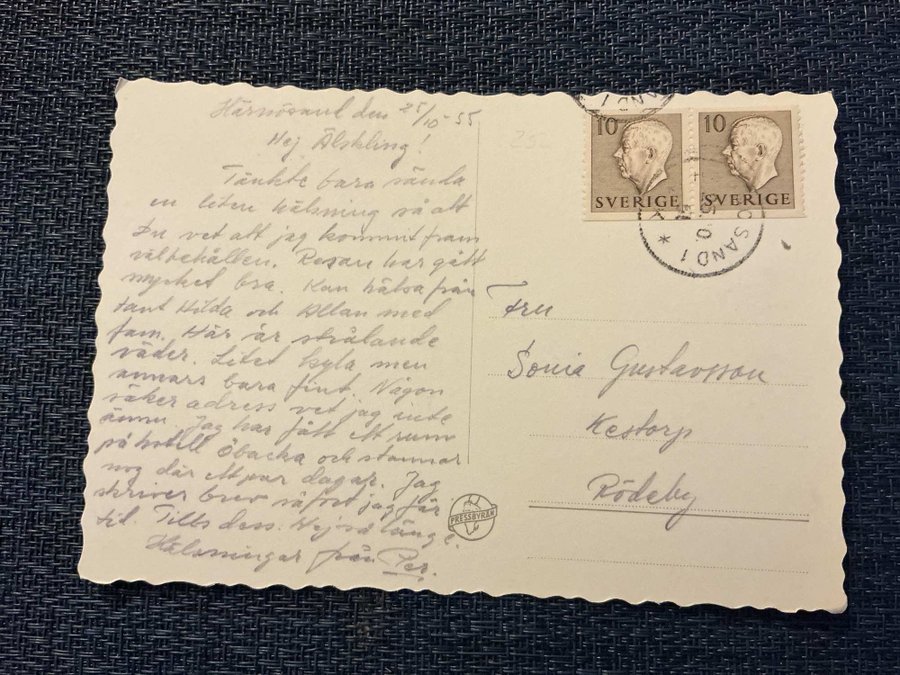 Härnösand den 25/10-55
Hej Älskling!
Tänkte bara sända
en liten hälsning så att
Du vet att jag kommit fram
välbehållen. Resan har gått
mycket bra. Kan hälsa från
tant Hilda och Allan med
fam. Här är strålande
väder. Litet kyla men
annars bara fint. Någon
säker adress vet jag inte
ännu. Jag har fått ett rum
på hotell Öbacka och stannar
nog där ett par dagar. Jag
skriver brev så fort jag får
tid. Tills dess. Hej så länge.
Hälsningar från Per.
252
10
SVERIGE
10
SVERIGE
SAND 1
ÖSAND 1
Fru
Sonia Gustavsson
Kestorp
Rödeby
PRESSBYRÅN